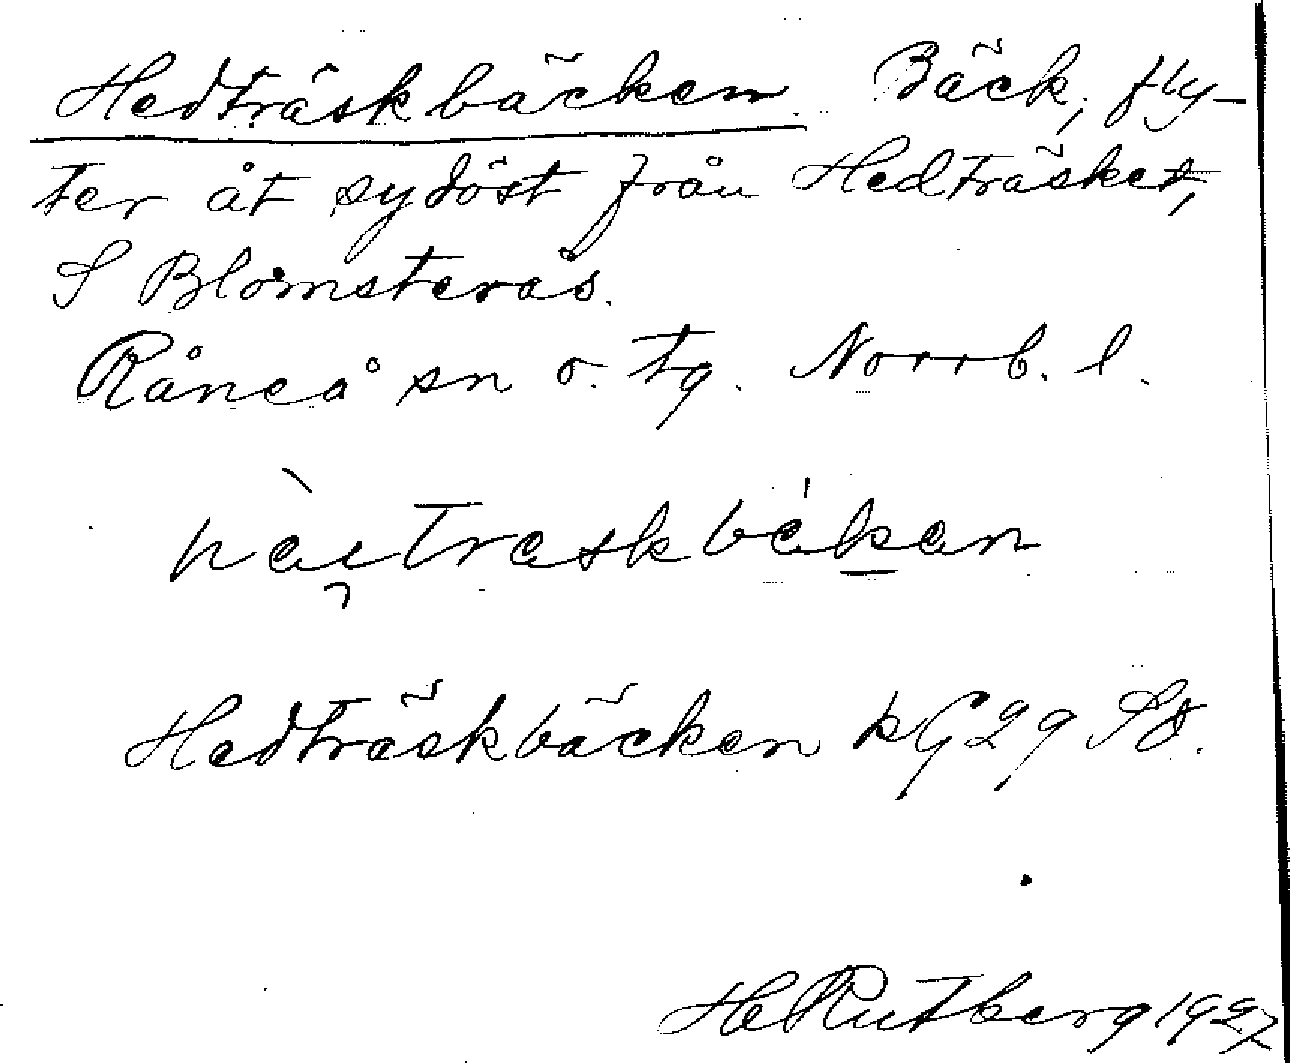 Hedträskbäcken Bäck, fly-
ter åt sydöst från Hedträsket,
S Blomsterås.
Råneå sn o. tg. Norrb. l.
Hedträskbäcken kG29 SO.
H Rutberg 1927